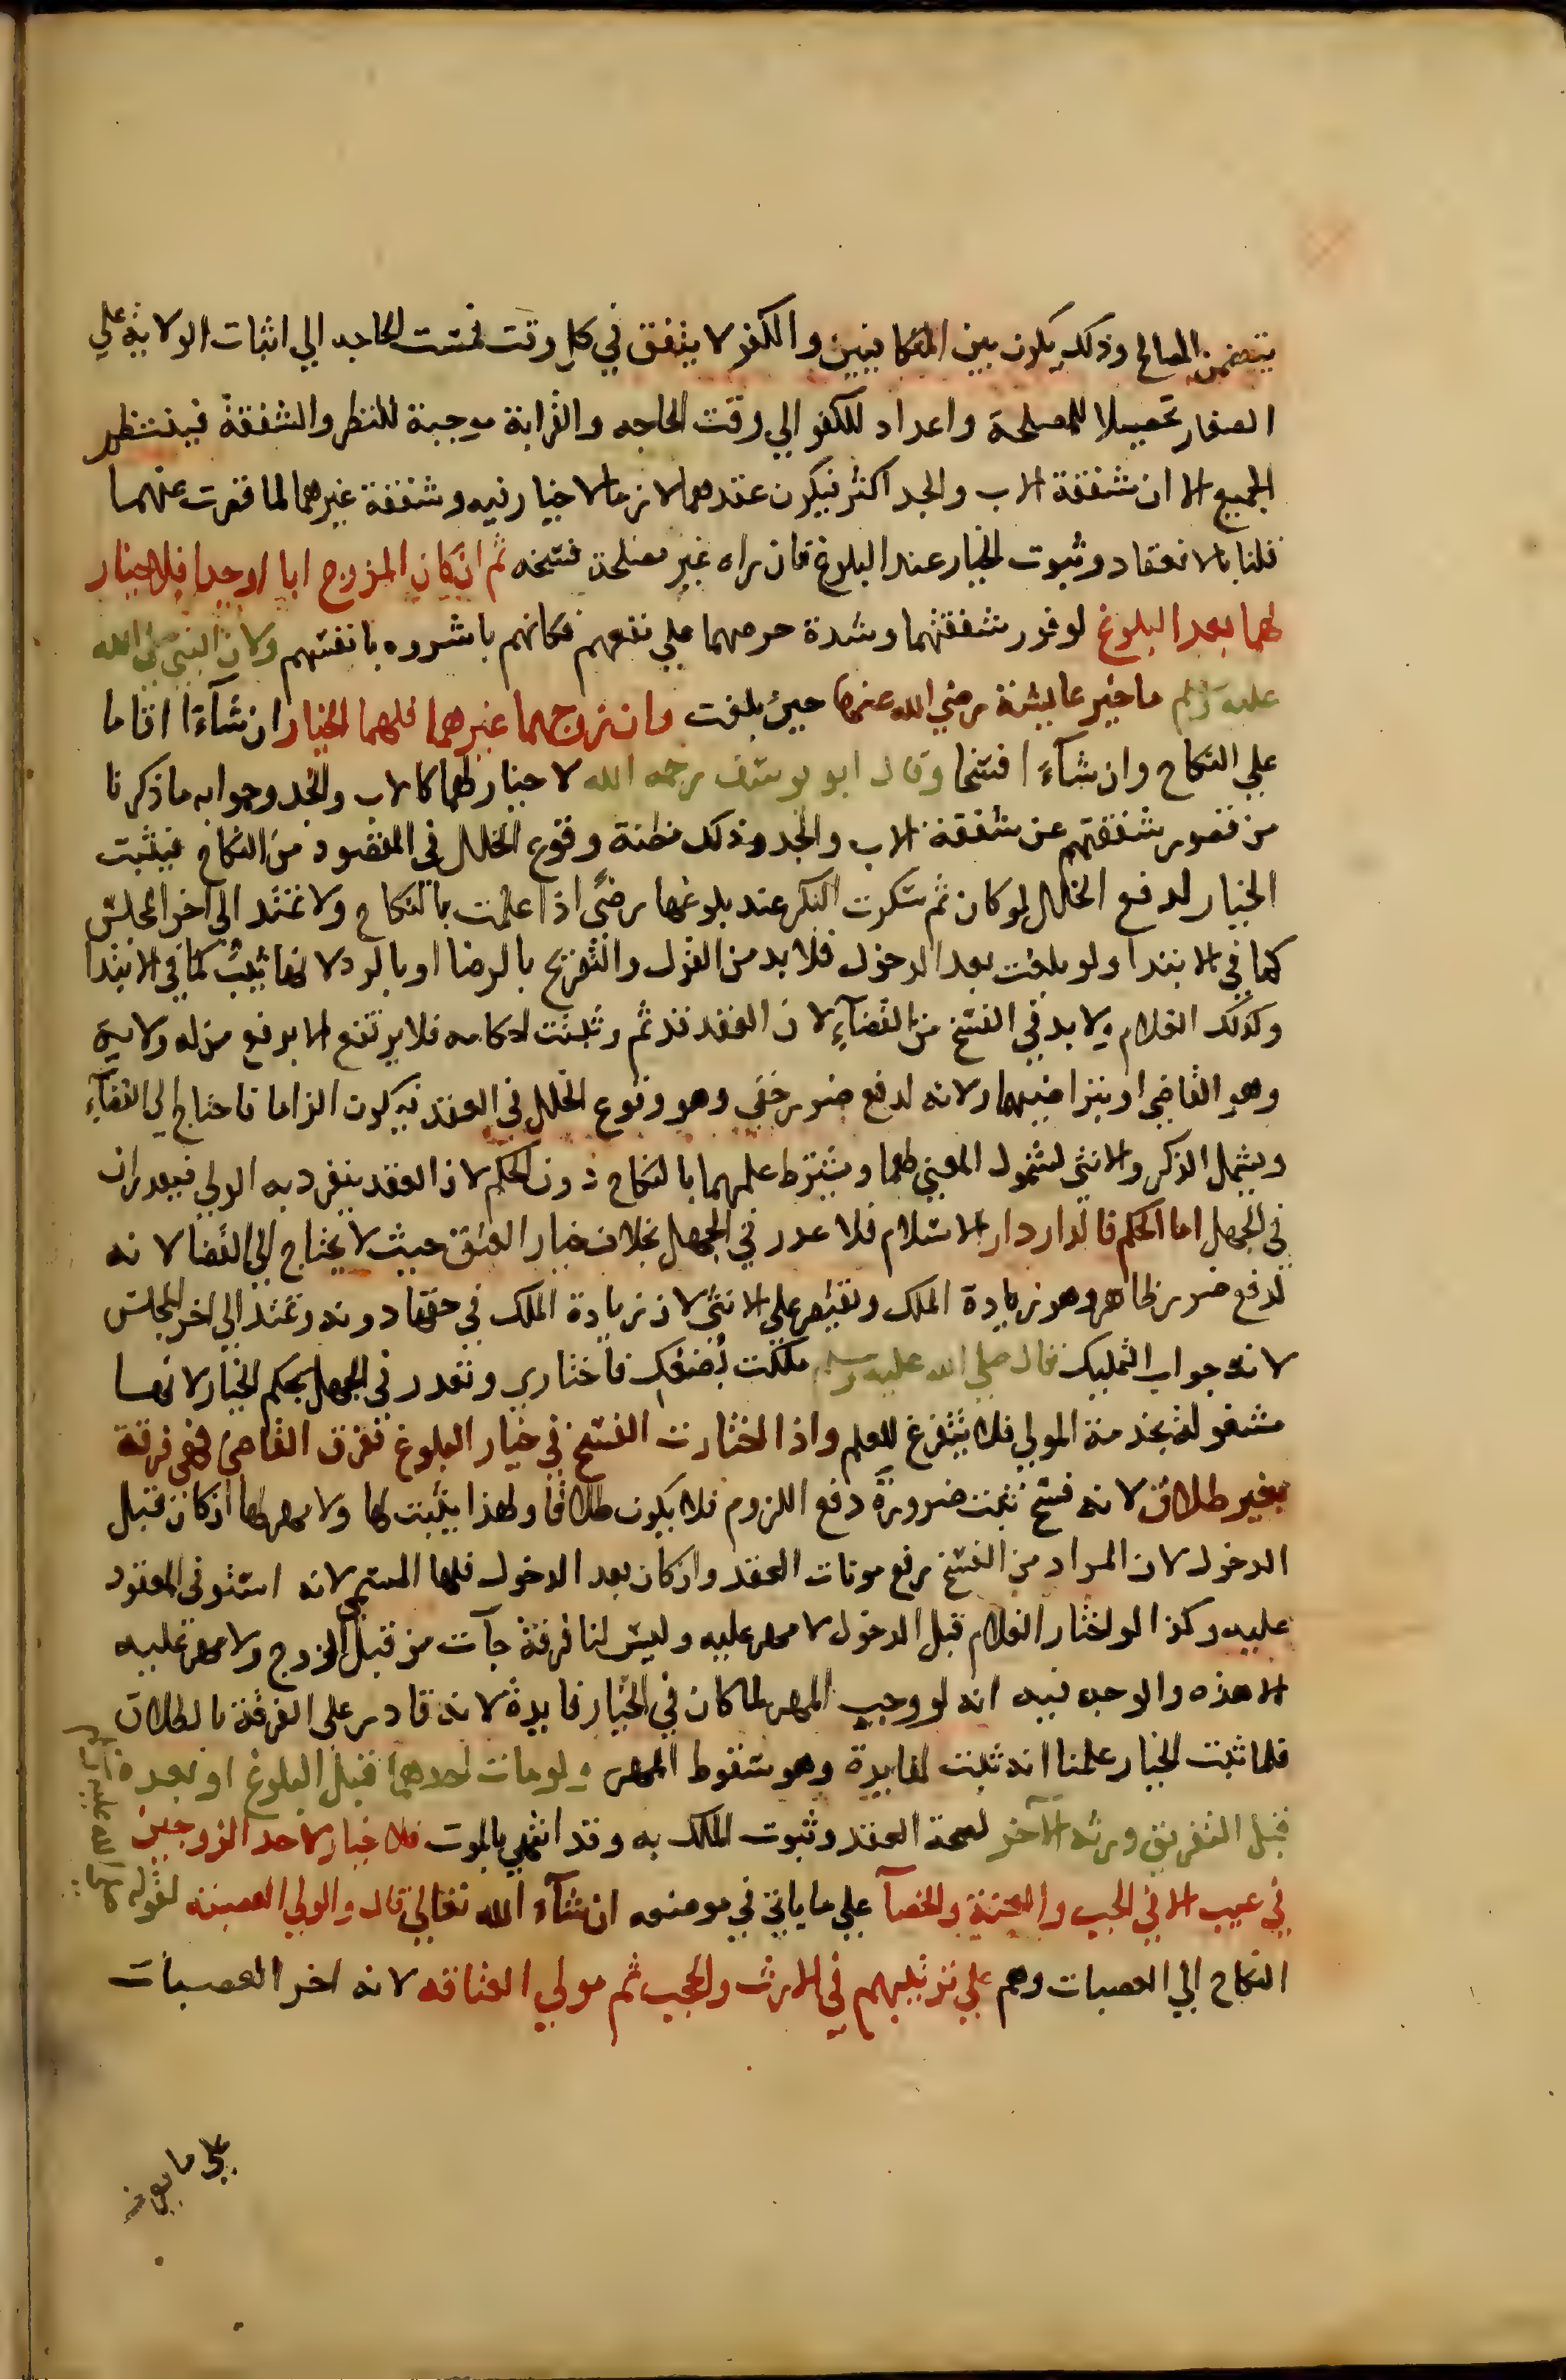 يتضمن المصالح وذلك يكون بين المتكافيين والكفو لا يتفق في كل وقت فمست الحاجه الي اثبات الولاية علي
الصغار تحصيلا للمصلحة واعداد للكفو الي وقت الحاجه والقرابة موجبة للنظر والشفقة فينتظر
الجميع الا ان شفقة الاب والجد اكثر فيكون عقدهما لازما لا خيار فيه وشفقة غيرهما لما قصرت عنهما
قلنا بالانعقاد وثبوت الخيار عند البلوغ فان راه غير مصلحة فسخه ثم ان كان المزوج ابا او جدا فلا خيار
لهما بعد البلوغ لوفور شفقتهما وشدة حرصهما علي نفعهم فكانهم باشروه بانفسهم ولان النبي صلى الله
عليه وسلم ما خير عايشة رضي الله عنها حين بلغت وان زوجهما غيرهما فلهما الخيار ان شآءا اقاما
علي النكاح وان شآءا فسخا وقال ابو يوسف رحمه الله لا خيار لهما كالاب والجد وجوابه ما ذكرنا
من قصور شفقتهم عن شفقة الاب والجد وذلك مظنة وقوع الخلل في المقصود من النكاح فيثبت
الخيار لدفع الخلل لو كان ثم سكوت البكر عند بلوغها رضًى اذا علمت بالنكاح ولا تمتد الى اخر المجلس
كما في الابتدا ولو بلغت بعد الدخول فلا بد من القول والتصريح بالرضا او بالرد لانها ثيب كما في الابتدا
وكذلك الغلام ولا بد في الفسخ من القضآء لان العقد قد تم وثبتت احكامه فلا يرتفع الا برفع من له ولاية
وهو القاضي او بتراضيهما ولانه لدفع ضرر خفي وهو وقوع الخلل في العقد فيكون الزاما فاحتاج الي القضآء
ويشمل الذكر والانثي لشمول المعني لهما ويشترط علمهما بالنكاح دون الحكم لان العقد ينفرد به الولي فيعذران
في الجهل اما الحكم فالدار دار الاسلام فلا عذر في الجهل بخلاف خيار العتق حيث لا يحتاج الي القضا لانه
لدفع ضرر ظاهر وهو زيادة الملك ويقتصر علي الانثي لان زيادة الملك في حقها دونه وتمتد الي اخر المجلس
لانه جواب التمليك قال صلي الله عليه وسلم ملكت بُضعَكِ فاختاري وتعذر في الجهل بحكم الخيار لانها
مشغولة بخدمة المولي فلا يتفرغ للعلم واذا اختارت الفسخ في خيار البلوغ تفرق القاضي فهي فرقة
بغير طلاق لانه فسخ ثبت ضرورة دفع اللزوم فلا يكون طلاقا ولهذا يثبت لها ولا مهر لها ان كان قبل
الدخول لان المراد من الفسخ رفع موتات العقد وان كان بعد الدخول فلها المسمي لانه استوفى المعقود
عليه وكذا لو اختار الغلام قبل الدخول لا مهر عليه وليس لنا فرقة جآت من قبل الزوج ولا مهر عليه
الا هذه والوجه فيه انه لو وجب المهر لما كان في الخيار فايدة لانه قادر على الفرقة بالطلاق
فلما ثبت الخيار علمنا انه ثبت لفايدة وهو سقوط المهر ولو مات احدهما قبل البلوغ او بعده
قبل التفريق ورثه الآخر لصحة العقد وثبوت الملك به وقد انتهي بالموت فلا خيار لاحد الزوجين
في عيب الا في الجب والعنة والخصآ علي ما ياتي في موضعه ان شآء الله تعالي قال والولي العصبة لقوله صلى الله عليه وسلم
النكاح الي العصبات وهم علي ترتيبهم في الارث والحجب ثم مولي العتاقه لانه اخر العصبات
علي ما